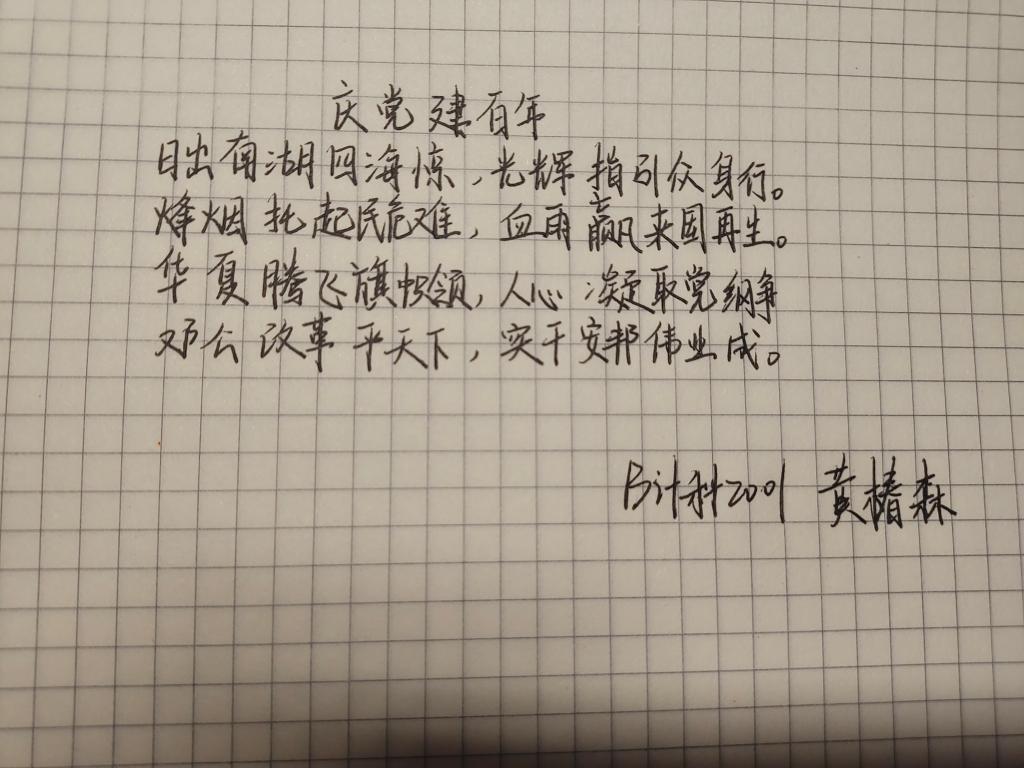 庆党建百年
日出南湖四海惊,光辉指引众身行。
烽烟托起民危难,血雨赢来国再生。
华夏腾飞旗帜领,人心凝聚党纲争
邓公改革平天下,实干安邦伟业成。
B计科2001 黄椿森